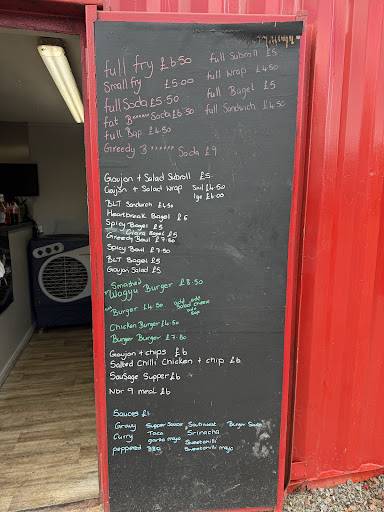 full fry £6.50
Small fry £5.00
full Soda £5.50
fat B****** Soda £6.50
full Bap £4.50
Greedy B****** Soda £9
full Subroll £5
full wrap £4.50
full Bagel £5
full Sandwich £4.50
Goujon + Salad Subroll £5
Goujon + Salad wrap Sml £4.50
lge £6.00
BLT Sandwich £4.50
Heartbreak Bagel £6
Spicy Bagel £5
Bagel £5
Greedy Bowl £7.50
Spicy Bowl £7.50
BLT Bagel £5
Goujon Salad £5
Smashed
Wagyu Burger £8.50
Burger £4.50 add Salad cheese
Chicken Burger £4.50
Burger Burger £7.80
Goujon + chips £6
Salted Chilli Chicken + chip £6
Sausage Supper £6
Nor 9 meal £6
Sauces £1
Gravy Supper Sauce Southwest Burger Sauce
Curry Taco Sriracha
peppered garlic mayo Sweetchilli
BBQ Sweetchilli mayo